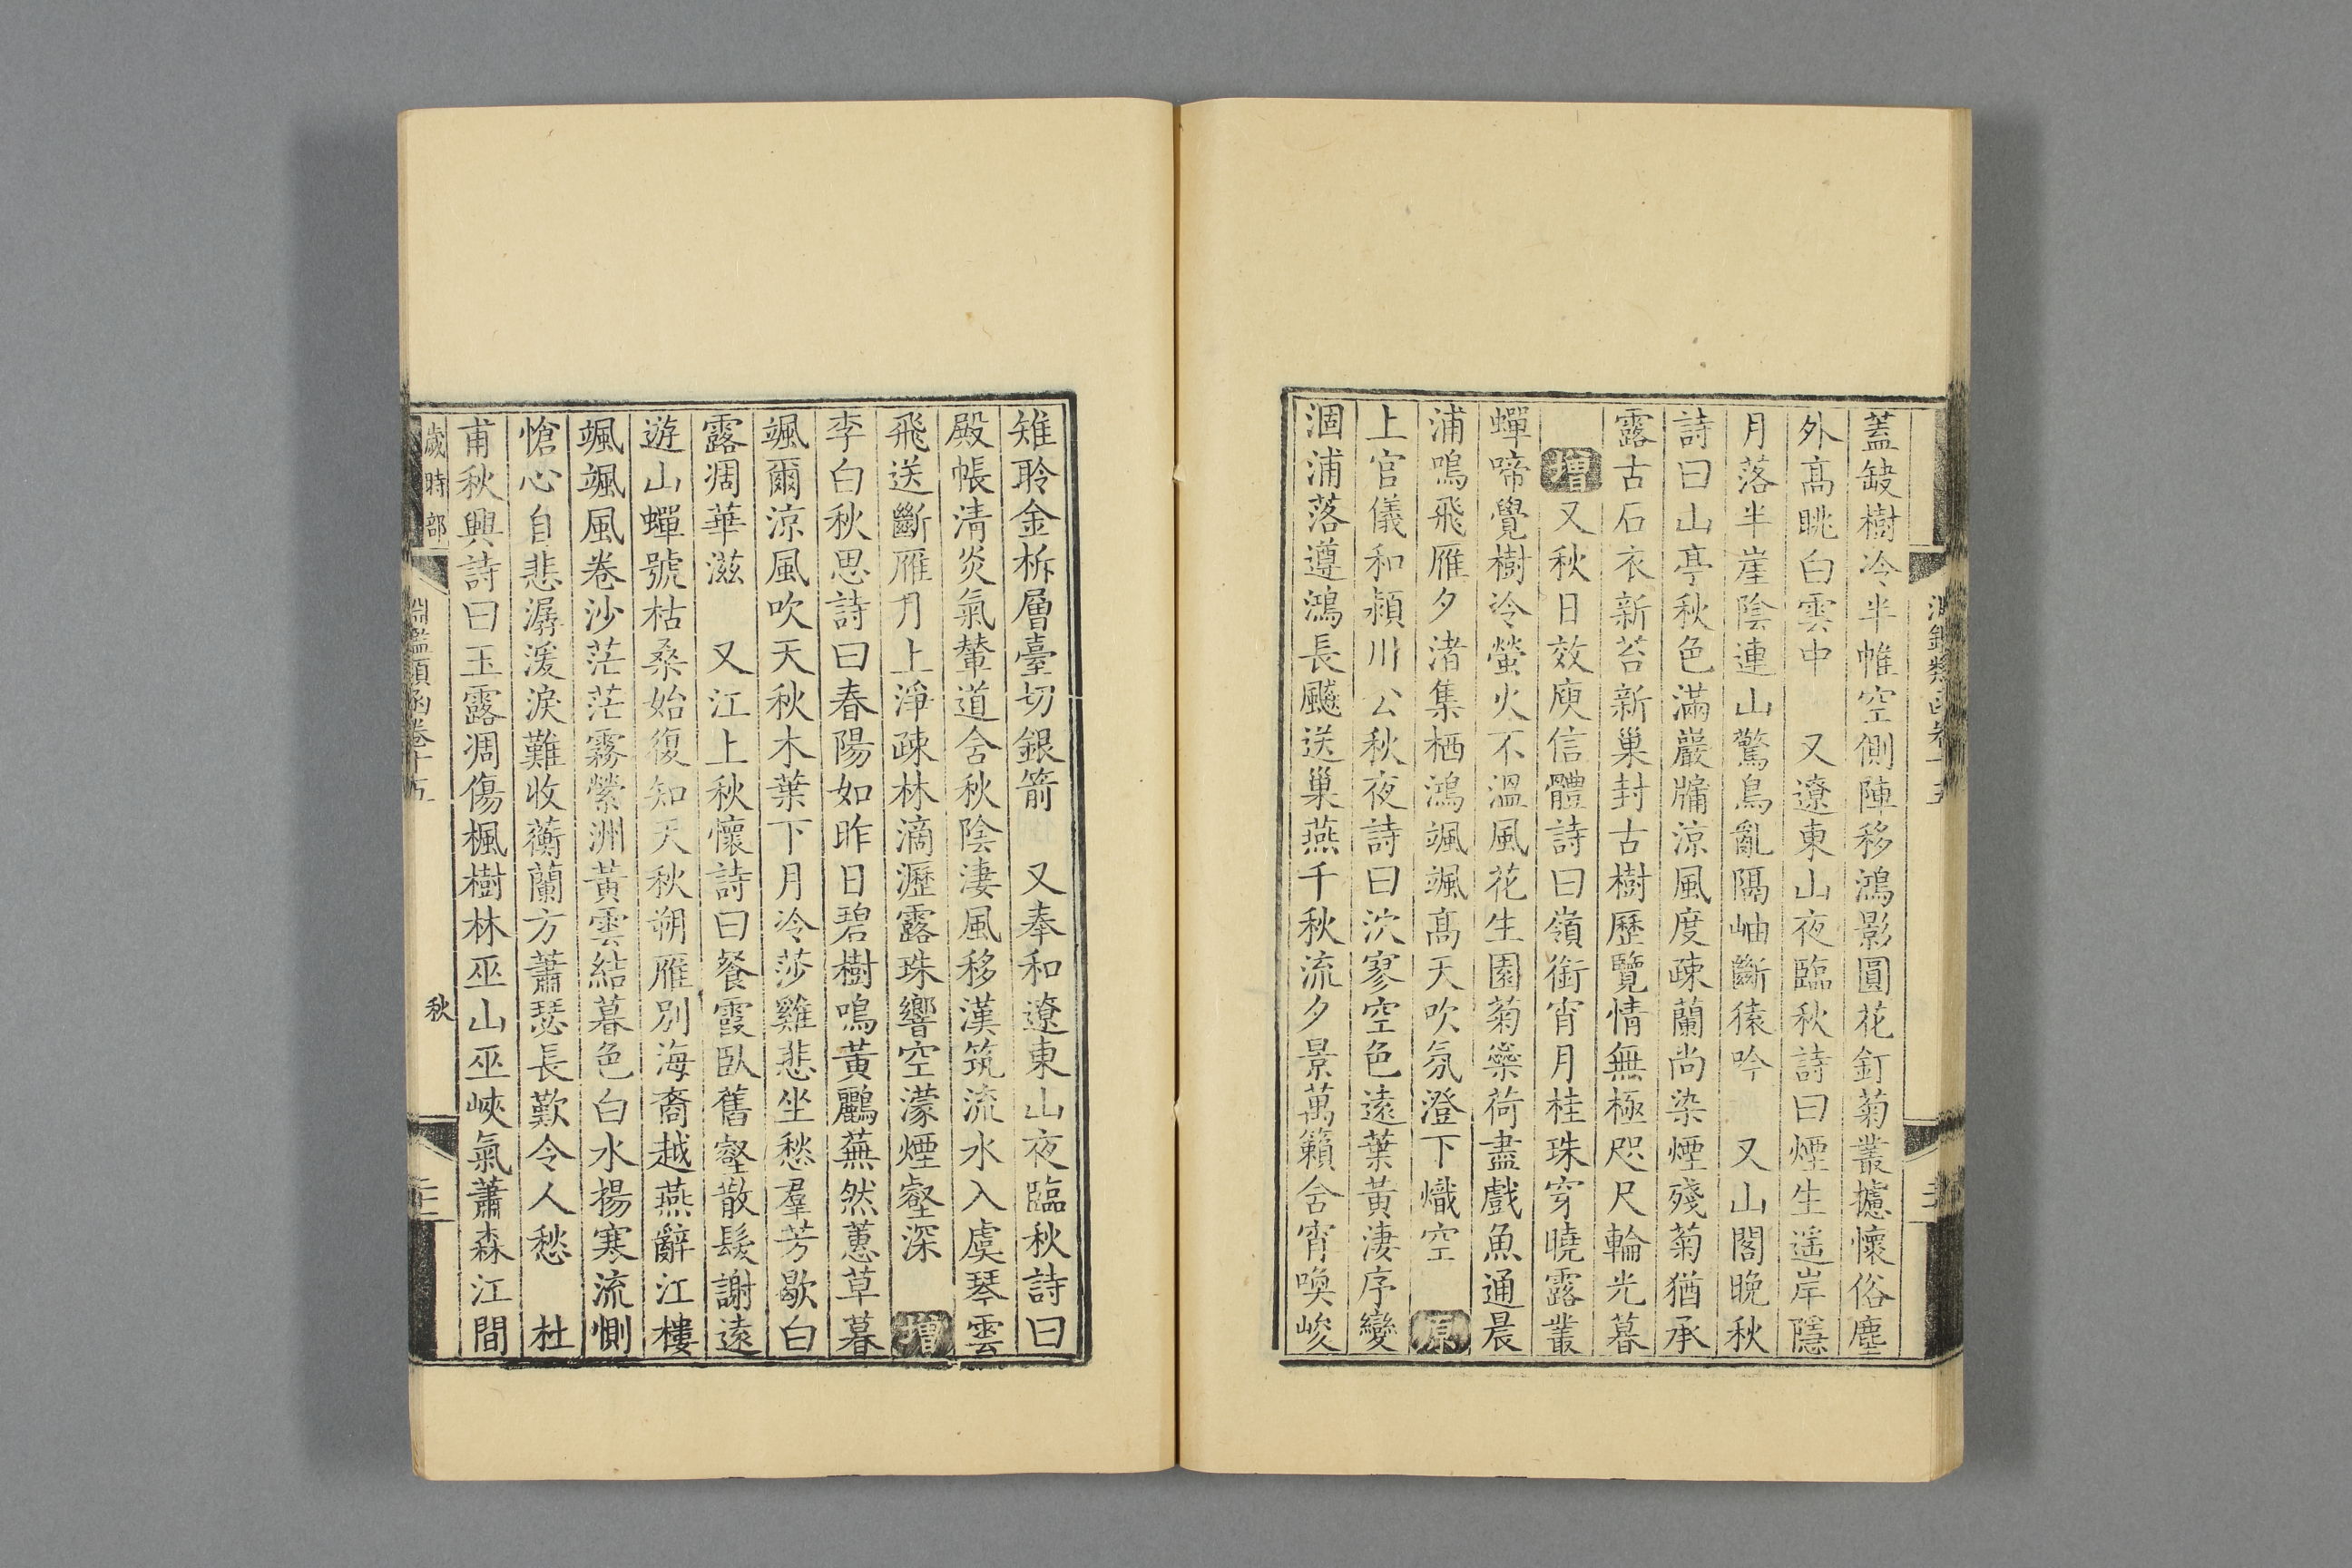 蓋缺樹冷半帷空側陣移鴻影圓花釘菊叢攄懷俗塵
外高眺白雲中　又遼東山夜臨秋詩曰煙生遥岸隱
月落半崖陰連山驚鳥亂隔岫斷猿吟　又山閣晚秋
詩曰山亭秋色滿巖牖涼風度疎蘭尚染煙殘菊猶承
露古石衣新苔新巢封古樹歷覽情無極咫尺輪光暮
增又秋日效庾信體詩曰嶺銜宵月桂珠穿曉露叢
蟬啼覺樹冷螢火不溫風花生園菊蘂荷盡戲魚通晨
浦鳴飛雁夕渚集栖鴻颯颯高天吹氛澄下熾空　原
上官儀和潁川公秋夜詩曰泬寥空色遠葉黃淒序變
涸浦落遵鴻長飈送巢燕千秋流夕景萬籟含宵喚峻
雉聆金柝層臺切銀箭　又奉和遼東山夜臨秋詩曰
殿帳清炎氣輦道含秋陰淒風移漢筑流水入虞琴雲
飛送斷雁月上淨疎林滴瀝露珠響空濛煙壑深　增
李白秋思詩曰春陽如昨日碧樹鳴黃鸝蕪然蕙草暮
颯爾涼風吹天秋木葉下月冷莎雞悲坐愁羣芳歇白
露凋華滋　又江上秋懷詩曰餐霞臥舊壑散髮謝遠
遊山蟬號枯桑始復知天秋朔雁別海裔越燕辭江樓
颯颯風卷沙茫茫霧縈洲黃雲結暮色白水揚寒流惻
愴心自悲潺湲淚難收蘅蘭方蕭瑟長歎令人愁　杜
甫秋興詩曰玉露凋傷楓樹林巫山巫峽氣蕭森江間
歲時部
淵鑑類函卷十五　秋